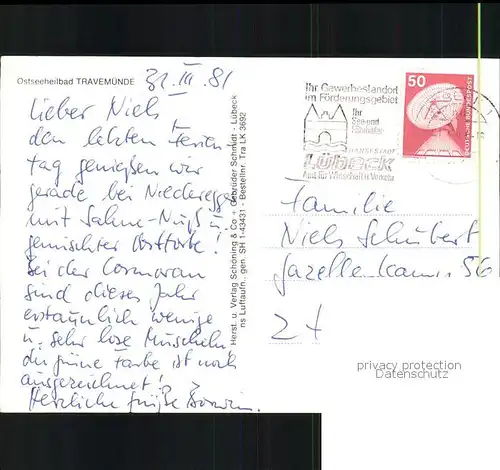 Ostseeheilbad TRAVEMÜNDE
31. III. 81
Lieber Niels,
den letzten Ferien-
tag genießen wir
gerade bei Niederegger
mit Sahne-Nuß u.
gemischter Obsttorte!
Bei der Cormoran
sind dieses Jahr
erstaunlich wenige
u. sehr lose Muscheln
die grüne Farbe ist noch
ausgezeichnet!
Herzliche Grüße
Herst. u. Verlag Schöning & Co + Gebrüder Schmidt - Lübeck
ns Luftaufn., gen. SH 1-43431 - Bestellnr. Tra LK 3692
Ihr Gewerbestandort
im Förderungsgebiet
Ihr
HANSESTADT
LÜBECK
Amt für Wirtschaft u. Verkehr
50
DEUTSCHE BUNDESPOST
Familie
Niels Schubert
Gazellenkamp 56
2
privacy protection
Datenschutz